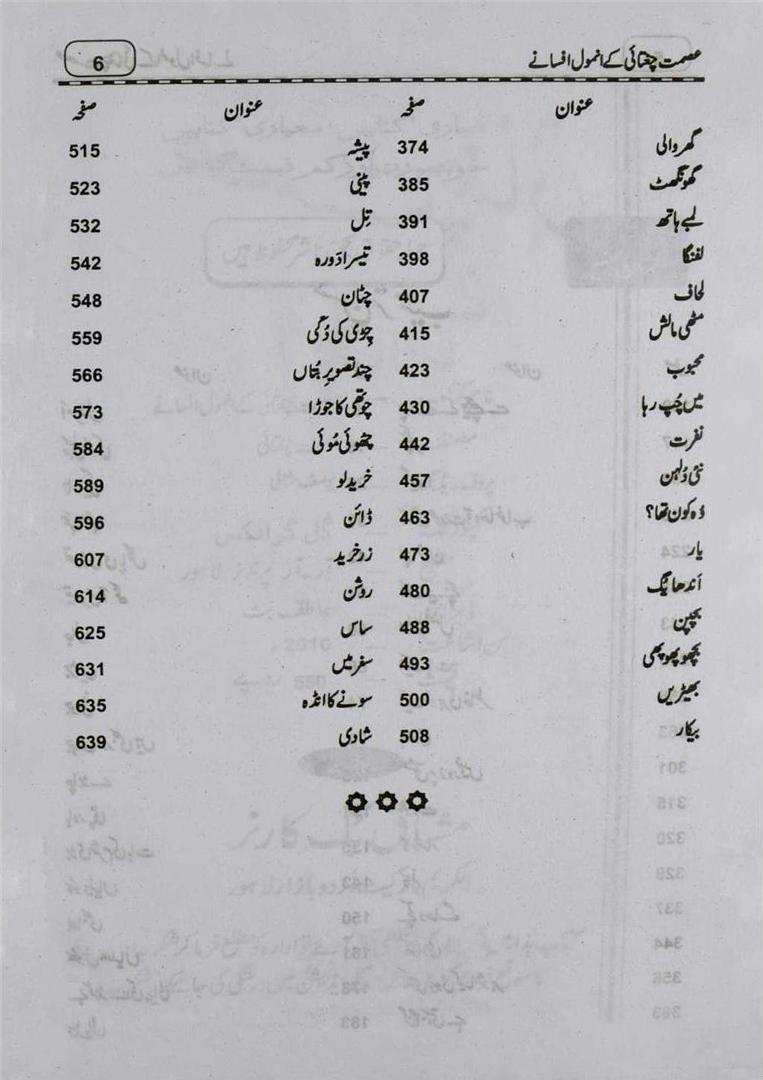 عصمت چغتائی کے انمول افسانے 6
عنوان صفحہ عنوان صفحہ
گھر والی 374 پیشہ 515
گھونگھٹ 385 پینی 523
لمبے ہاتھ 391 تِل 532
لفنگا 398 تیسرا دَورہ 542
لحاف 407 چٹان 548
مٹھی مالش 415 چِڑی کی دُگی 559
محبوب 423 چند تصویرِ بُتاں 566
میں چُپ رہا 430 چوتھی کا جوڑا 573
نفرت 442 چھوئی مُوئی 584
نئی دُلہن 457 خرید لو 589
وُہ کون تھا؟ 463 ڈائن 596
یار 473 زر خرید 607
اَندھا یُگ 480 روشن 614
بچپن 488 ساس 625
بچھو پھوپھی 493 سفر میں 631
بھیڑیں 500 سونے کا انڈہ 635
بیکار 508 شادی 639